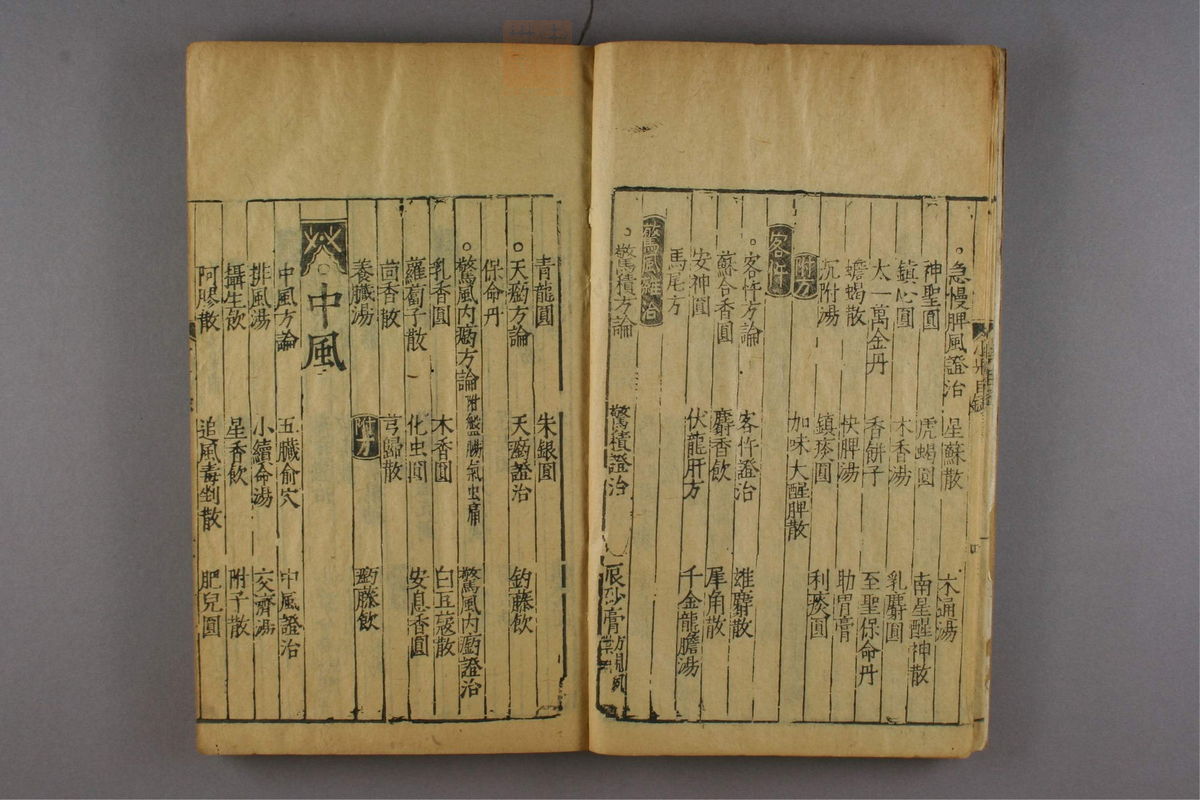 急慢脾風證治 星蘇散 木通湯
神聖圓 虎蝎圓 南星醒神散
鎮心圓 木香湯 乳麝圓
太一萬金丹 香餅子 至聖保命丹
蟾蝎散 快脾湯 助胃膏
沉附湯 鎮痰圓 利痰圓
附方 加味大醒脾散
客忤
客忤方論 客忤證治 雄麝散
蘇合香圓 麝香飲 犀角散
安神圓 伏龍肝方 千金龍膽湯
馬尾方
驚風雜治
驚積方論 驚積證治 辰砂膏
青龍圓 朱銀圓 釣藤飲
天瘹方論 天瘹證治
保命丹
驚風內瘹方論 附盤腸氣虫痛 驚風內瘹證治
乳香圓 木香圓 白豆蔻散
蘿蔔子散 化虫圓 安息香圓
茴香散 芎歸散
養臟湯 附方 瘹藤飲
中風
中風方論 五臟俞穴 中風證治
排風湯 小續命湯 交濟湯
攝生飲 星香飲 附子散
阿膠散 追風毒剉散 肥兒圓